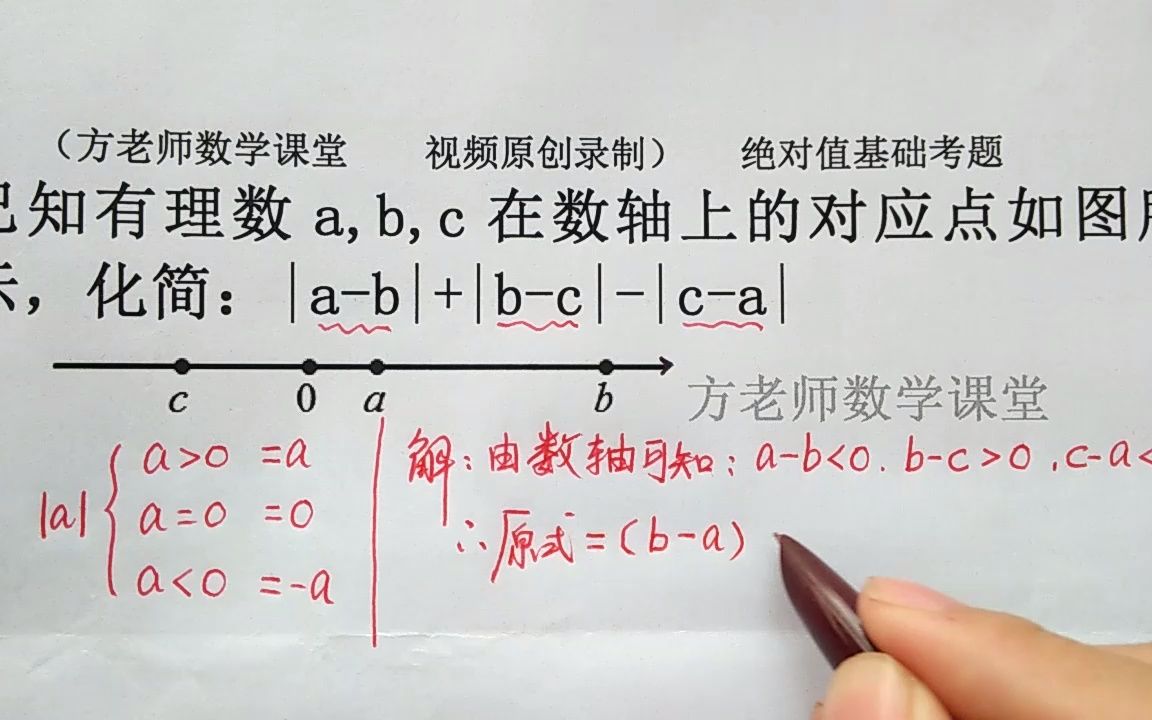 （方老师数学课堂　视频原创录制）　绝对值基础考题
已知有理数 a, b, c 在数轴上的对应点如图所
示，化简：|a-b|+|b-c|-|c-a|
c 0 a b
方老师数学课堂
|a| { a>0 =a
a=0 =0
a<0 =-a
解：由数轴可知：a-b<0. b-c>0 , c-a<
∴原式=(b-a)